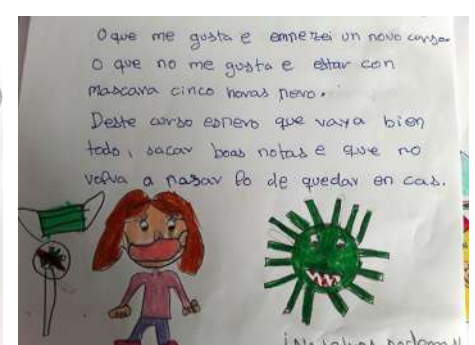 O que me gusta e empezei un novo curso.
O que no me gusta e estar con
mascara cinco horas pero.
Deste curso espero que vaya bien
todo, sacar boas notas e que no
volva a pasar lo de quedar en cas.